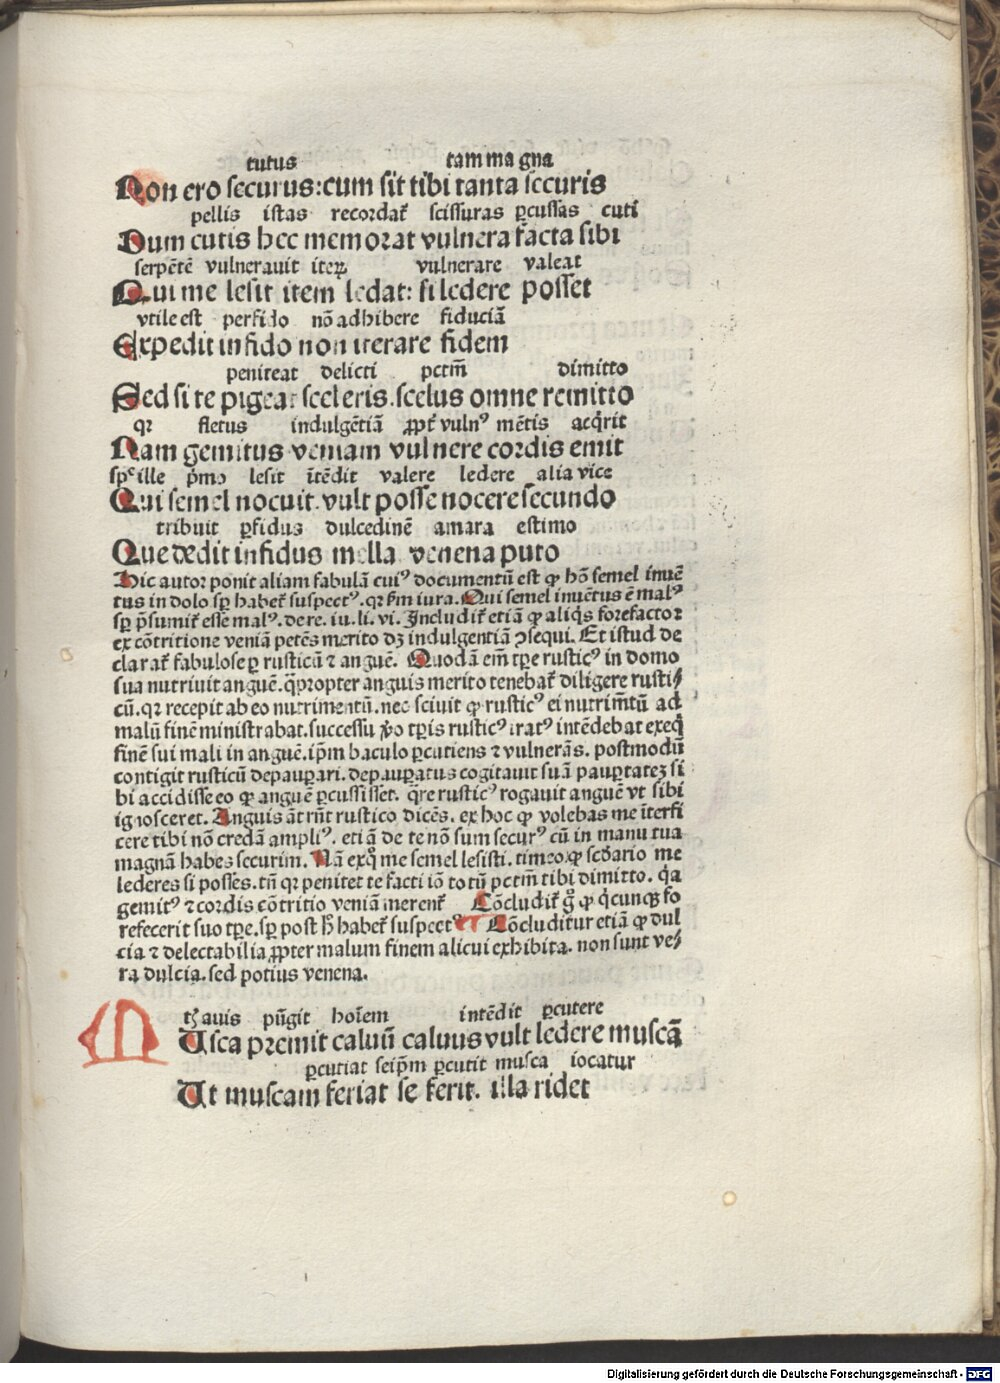 tutus tam magna
Non ero securus: cum sit tibi tanta securis
pellis istas recordat᷒ scissuras ꝑcussas cuti
Dum cutis hec memorat vulnera facta sibi
serpētē vulneravit iteꝝ vulnerare valeat
Qui me lesit item ledat: si ledere posset
vtile est perfido nō adhibere fiduciā
Expedit infido non iterare fidem
peniteat delicti pctm̄ dimitto
Sed si te pigeat sceleris. scelus omne remitto
qꝛ fletus indulgētiā ꝓpt᷒ vulnꝰ mētis acq̇rit
Nam gemitus veniam vulnere cordis emit
ille p̄mo lesit ītēdit valere ledere alia vice
Qui semel nocuit. vult posse nocere secundo
tribuit ꝑfidus dulcedinē amara estimo
Que dedit infidus mella venena puto
Hic autor ponit aliam fabulā cuiꝰ documentū est ꝙ hō semel inuē
tus in dolo sꝑ habet᷒ suspectꝰ. qꝛ fm iura. Qui semel inuētus ē malꝰ
sꝑ p̄sumit᷒ esse malꝰ. de re. iu. li. vi. Includit᷒ etiā ꝙ aliq̇s forefactoꝛ
ex cōtritione veniā petēs merito dꝫ indulgentiā ↄsequi. Et istud de
clarat᷒ fabulose ꝑ rusticū ⁊ anguē. Quodā em̄ tꝑe rusticꝰ in domo
sua nutriuit anguē. q̄propter anguis merito tenebat᷒ diligere rusti⸗
cū. qꝛ recepit ab eo nutrimentū. nec sciuit ꝙ rusticꝰ ei nutrimētū ad
malū finē ministrabat. successu ꝟo tꝑis rusticꝰ iratꝰ intēdebat exeq̇
finē sui mali in anguē. ip̄m baculo ꝑcutiens ⁊ vulnerās. postmodū
contigit rusticū depauꝑari. depauꝑatus cogitauit suā pauꝑtatez si
bi accidisse eo ꝙ anguē ꝑcussisset. q̄re rusticꝰ rogauit anguē vt sibi
ignosceret. Anguis āt rn̄t rustico dicēs. ex hoc ꝙ volebas me īterfi
cere tibi nō credā ampliꝰ. etiā de te nō sum securꝰ cū in manu tua
magnā habes securim. Nā exq̊ me semel lesisti. timeo ꝙ scd̄ario me
lederes si posses. tn̄ qꝛ penitet te facti iō totū pctm̄ tibi dimitto. q̄a
gemitꝰ ⁊ cordis cōtritio veniā merent᷒ Cōcludit᷒ g̊ ꝙ q̇cunqꝫ fo
refecerit suo tꝑe. sꝑ post hͦ habet᷒ suspectꝰ Cōcluditur etiā ꝙ dul
cia ⁊ delectabilia ꝓpter malum finem alicui exhibita. non sunt ve⸗
ra dulcia. sed potius venena.
auis pūgit hoīem intēdit ꝑcutere
MUsca premit caluū caluus vult ledere muscā
ꝑcutiat seip̄m ꝑcutit musca iocatur
Ut muscam feriat se ferit. illa ridet
Digitalisierung gefördert durch die Deutsche Forschungsgemeinschaft - DFG